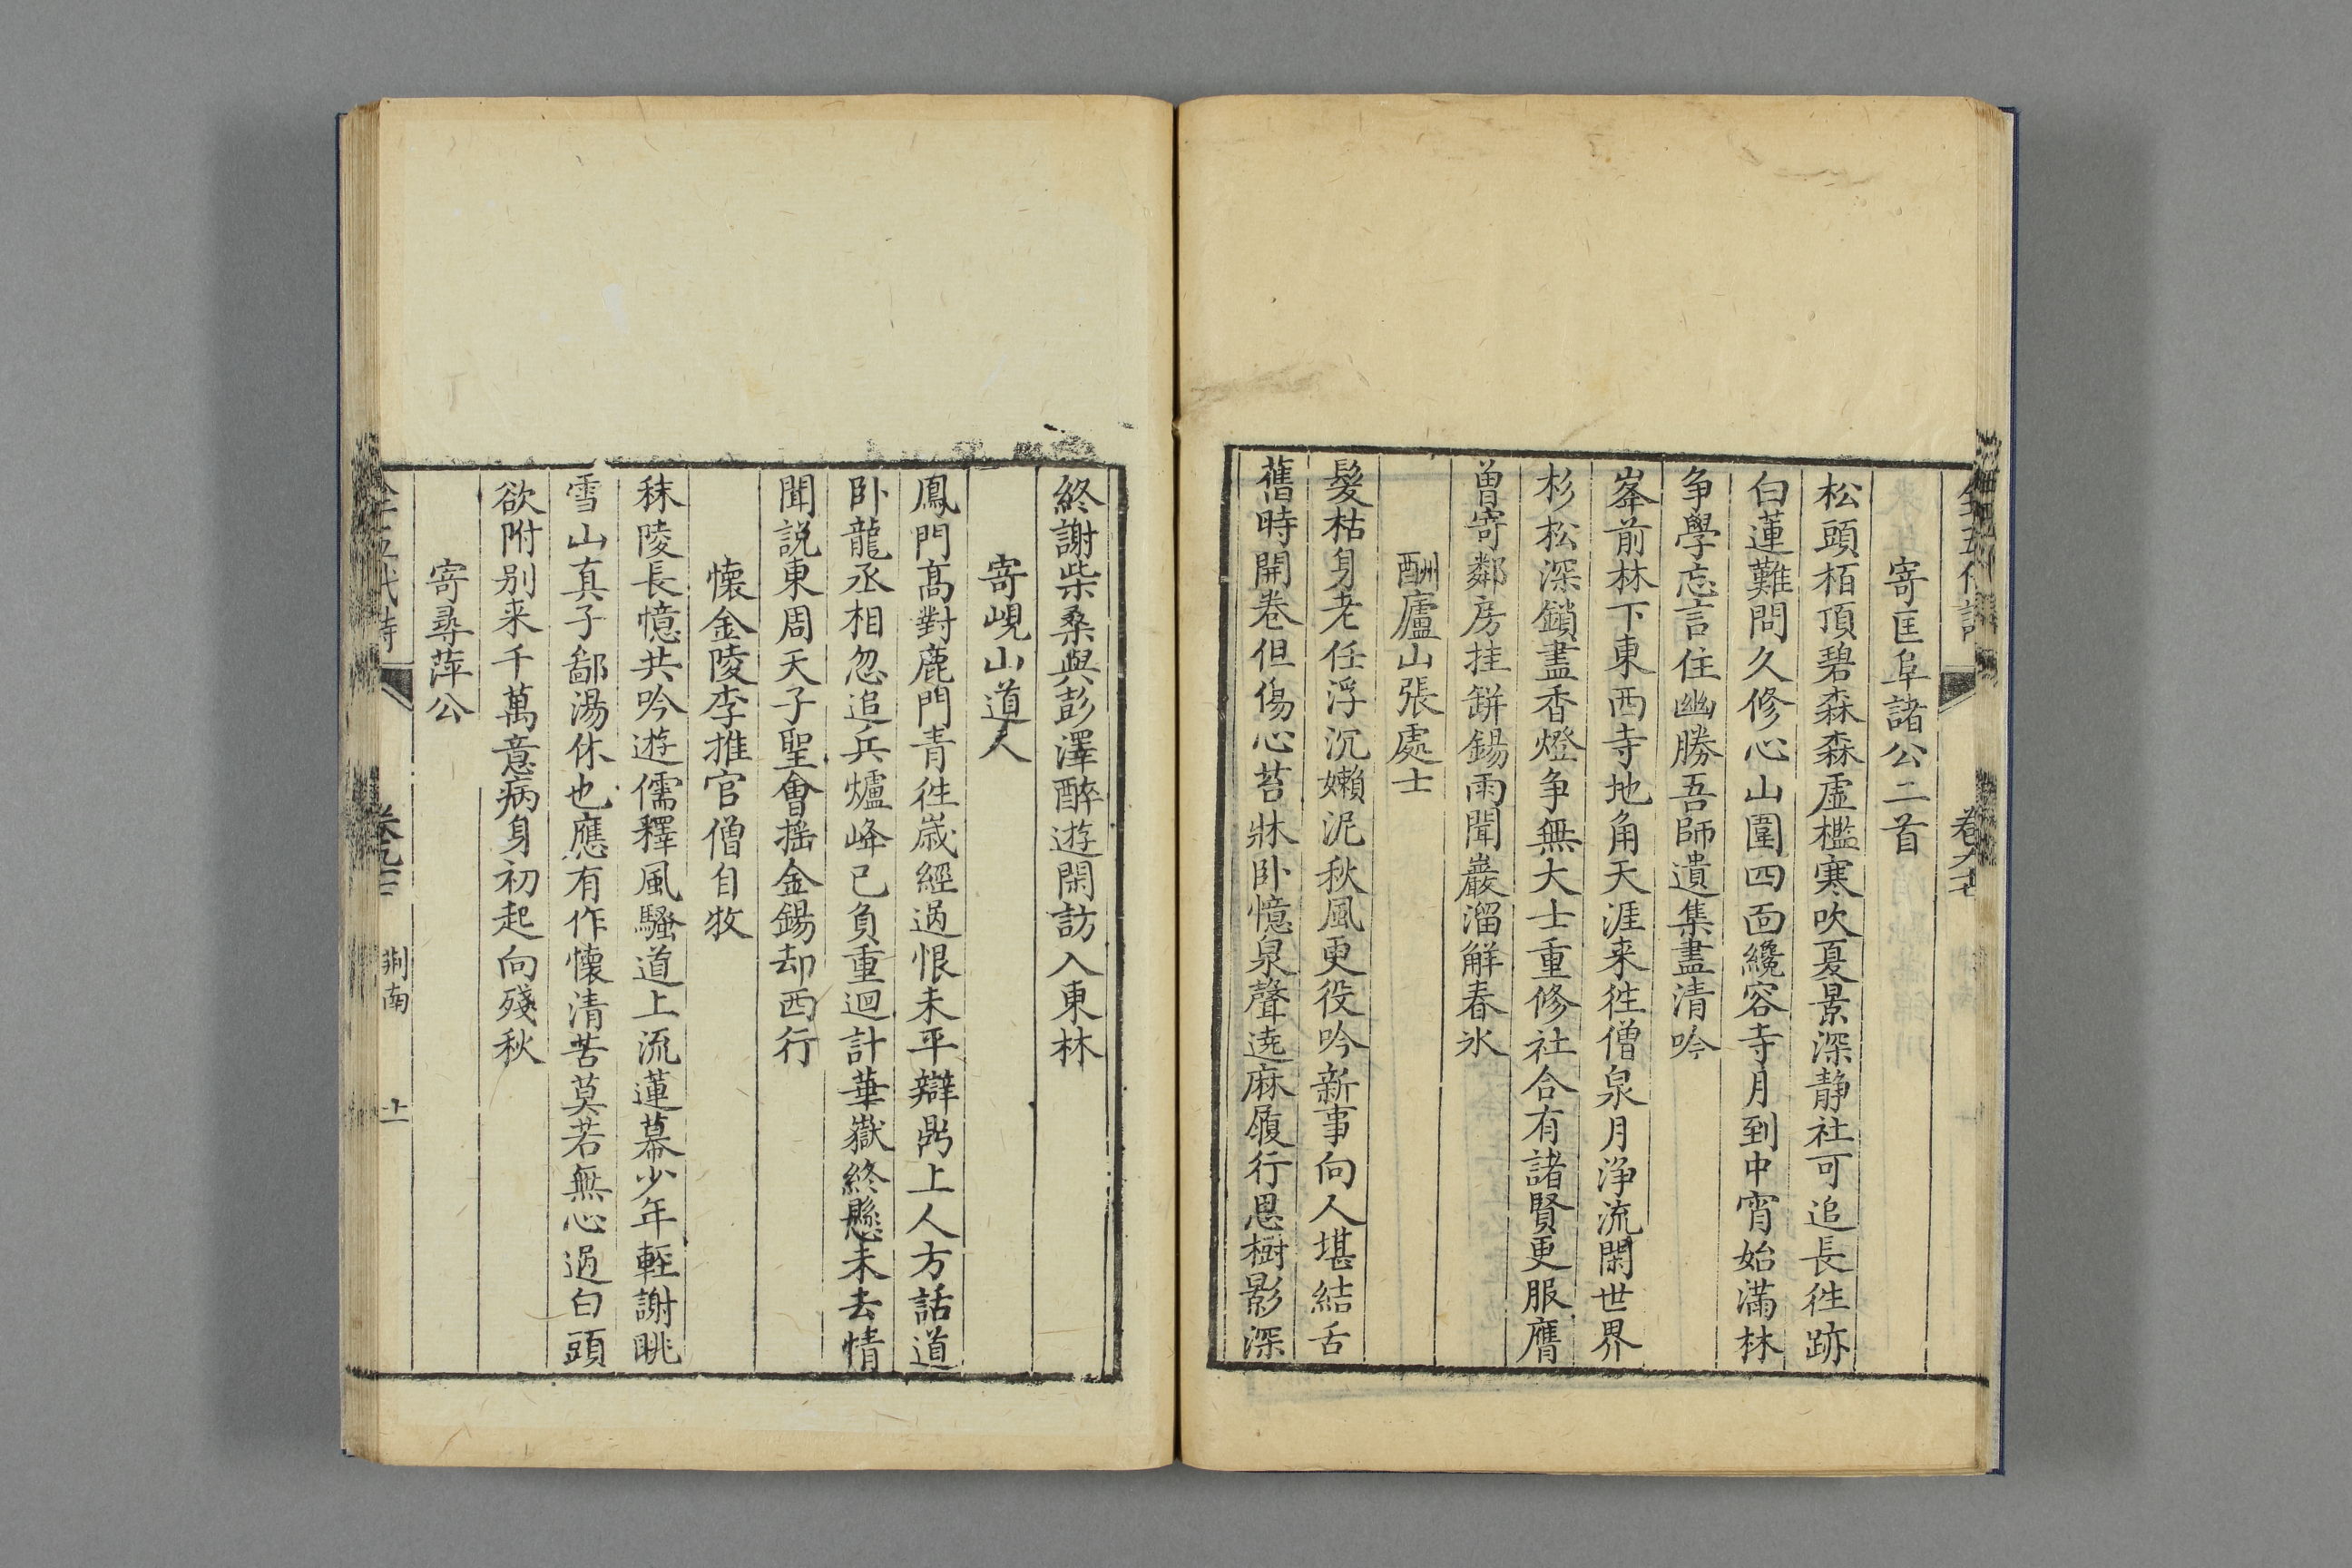 寄匡阜諸公二首
松頭栢頂碧森森虛檻寒吹夏景深静社可追長徃跡
白蓮難問久修心山圍四面纔容寺月到中宵始滿林
争學忘言住幽勝吾師遺集盡清吟
峯前林下東西寺地角天涯来徃僧泉月淨流閑世界
杉松深鎖盡香燈争無大士重修社合有諸賢更服膺
曽寄鄰房挂缾錫雨聞巖溜觧春氷
酬廬山張處士
髮枯身老任浮沉嬾泥秋風更役吟新事向人堪結舌
舊時開巻但傷心苔牀卧憶泉聲遶麻履行思樹影深
終謝柴桑與彭澤醉遊閑訪入東林
寄峴山道人
鳳門髙對鹿門青徃歲經過恨未平辯鼎上人方話道
卧龍丞相忽追兵爐峰已負重迴計華嶽終懸未去情
聞説東周天子聖會摇金錫却西行
懷金陵李推官僧自牧
秣陵長憶共吟遊儒釋風騷道上流蓮幕少年輕謝朓
雪山真子鄙湯休也應有作懷清苦莫若無心過白頭
欲附别来千萬意病身初起向殘秋
寄尋萍公
荆南